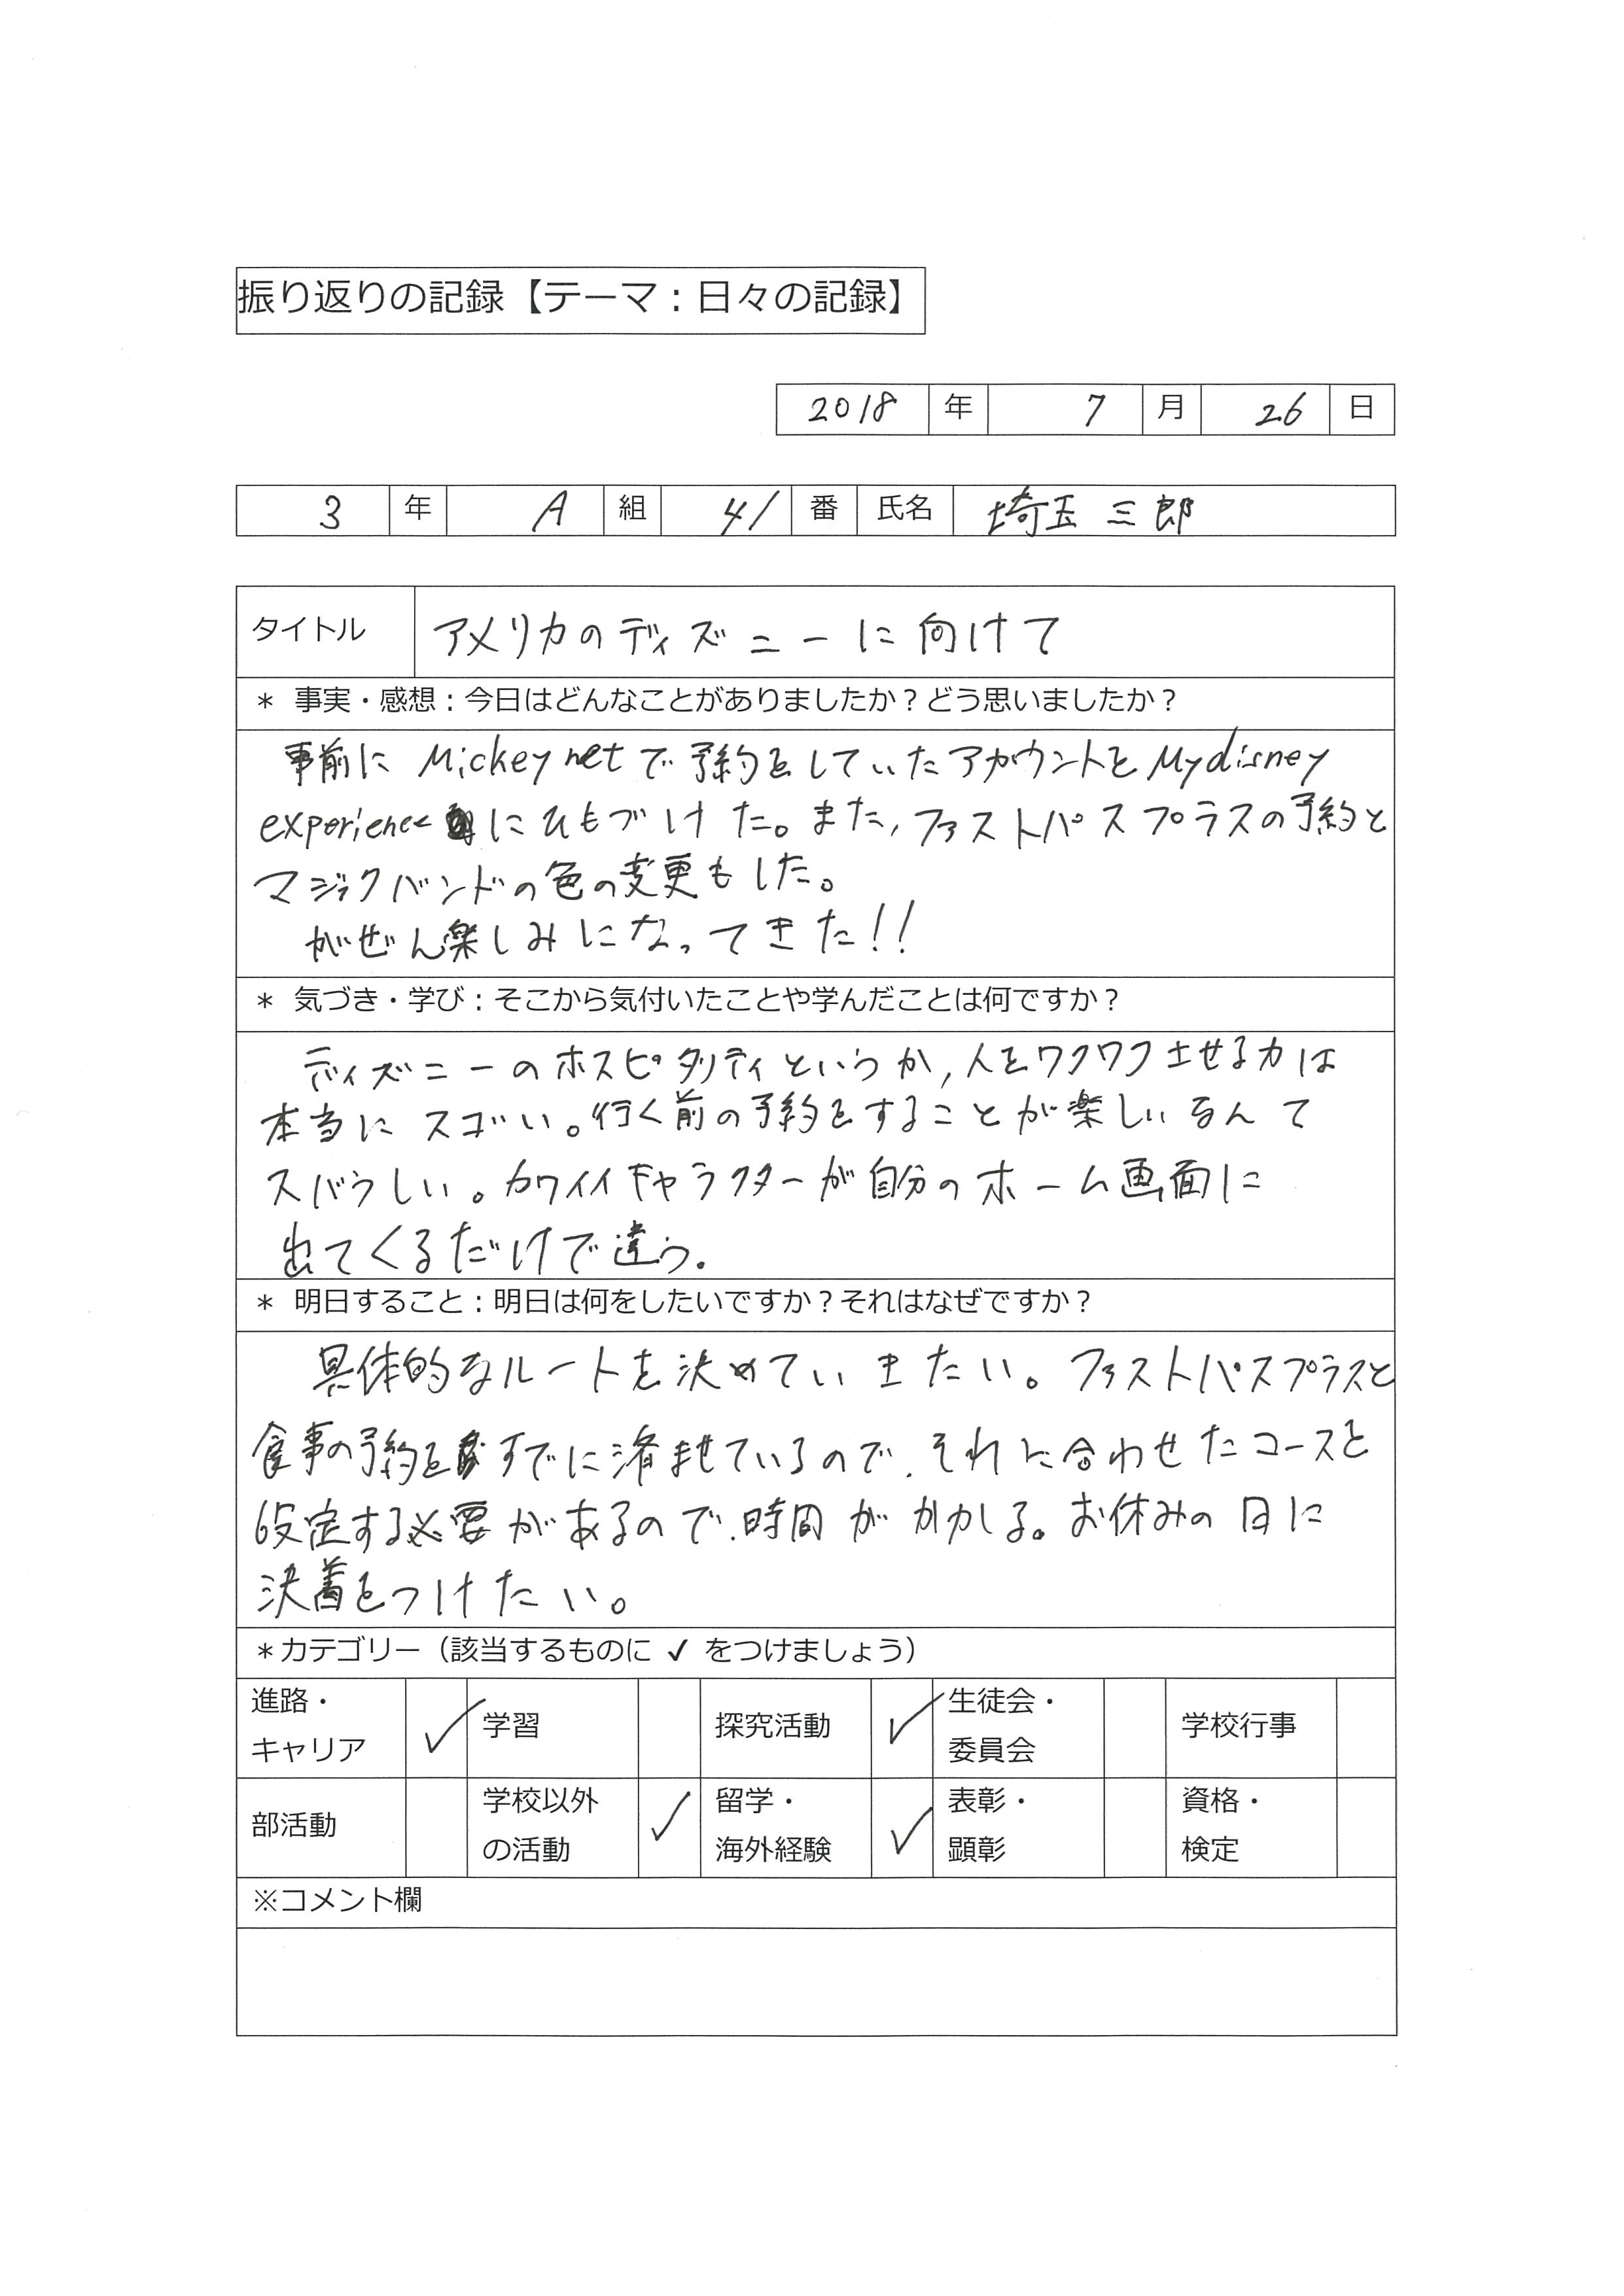 振り返りの記録【テーマ：日々の記録】
2018 年 7 月 26 日
3 年 A 組 41 番 氏名 埼玉 三郎
タイトル アメリカのディズニーに向けて
＊ 事実・感想：今日はどんなことがありましたか？どう思いましたか？
事前に Mickey netで予約をしていたアカウントをMydisney
experienceにひもづけた。また,ファストパスプラスの予約と
マジックバンドの色の変更もした。
がぜん楽しみになってきた!!
＊ 気づき・学び：そこから気付いたことや学んだことは何ですか？
ディズニーのホスピタリティというか,人をワクワクさせる力は
本当にスゴい。行く前の予約をすることが楽しいなんて
スバらしい。カワイイキャラクターが自分のホーム画面に
出てくるだけで違う。
＊ 明日すること：明日は何をしたいですか？それはなぜですか？
具体的なルートを決めていきたい。ファストパスプラスと
食事の予約をすでに済ませているので、それに合わせたコースを
設定する必要があるので、時間がかかる。お休みの日に
決着をつけたい。
＊カテゴリー（該当するものに ✓ をつけましょう）
進路・ ✓ 学習 探究活動 ✓ 生徒会・ 学校行事
キャリア 委員会
部活動 学校以外 ✓ 留学・ ✓ 表彰・ 資格・
の活動 海外経験 顕彰 検定
※コメント欄